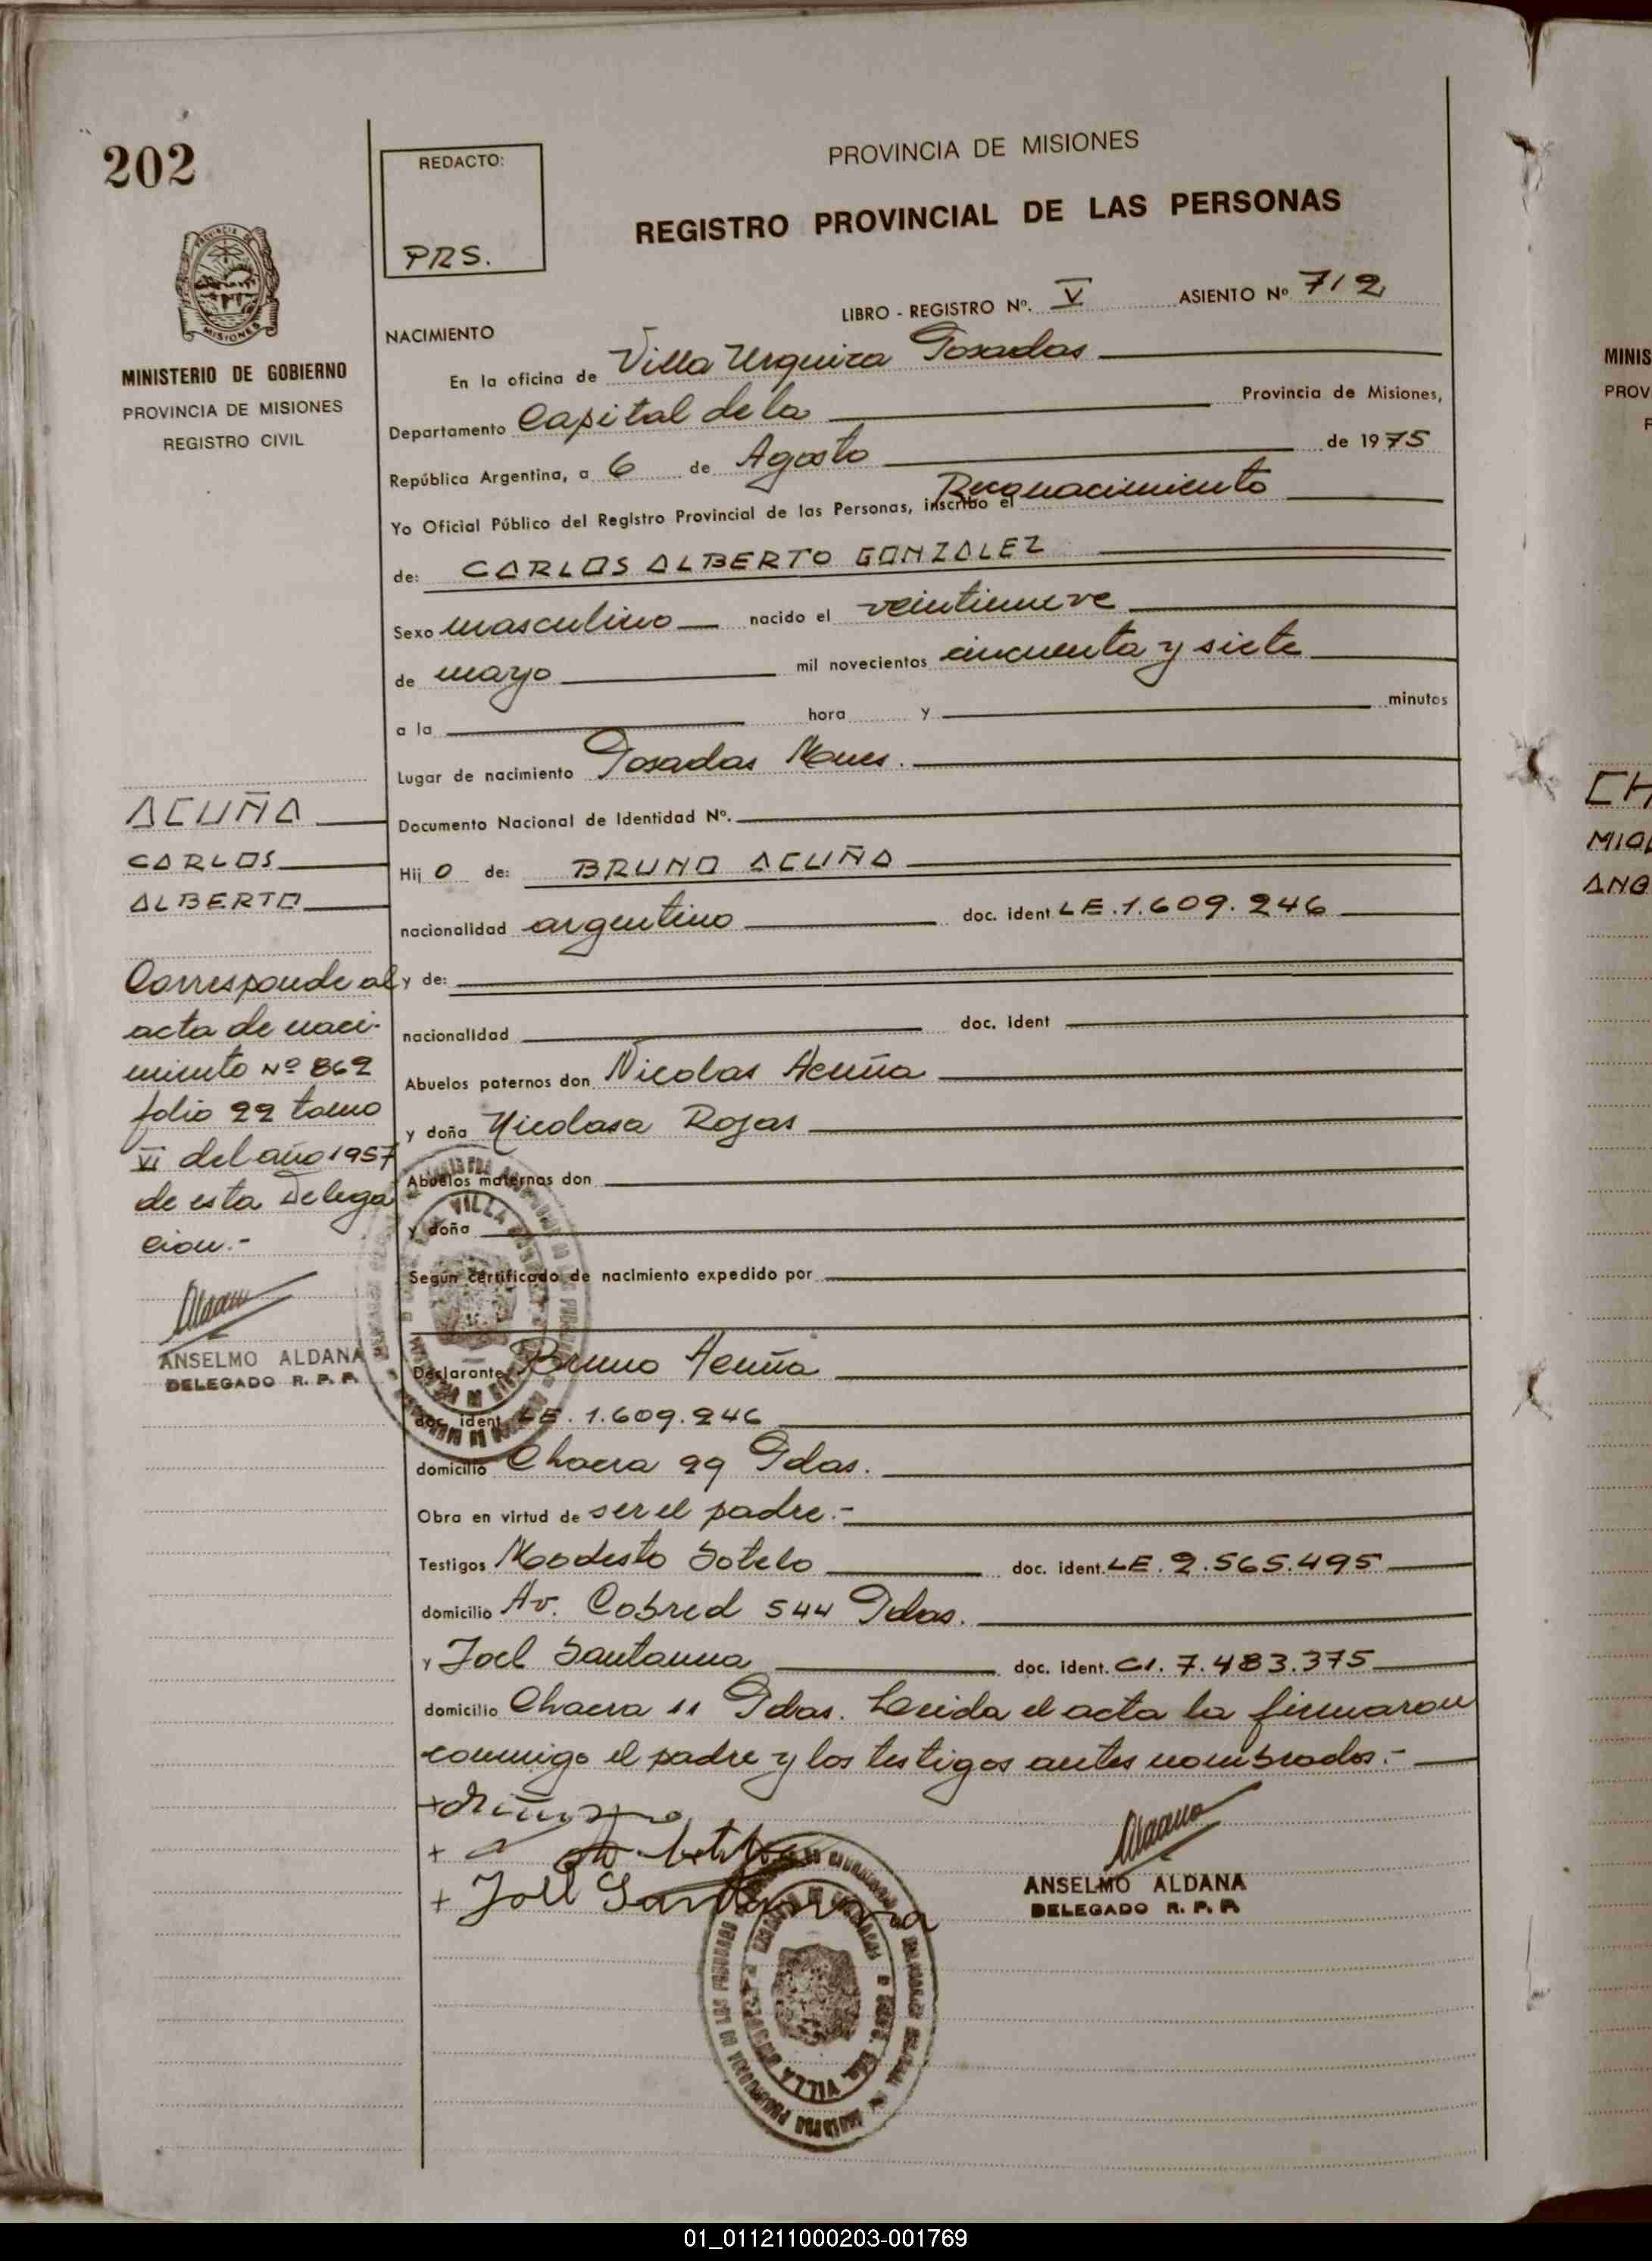 202
REDACTO:
PRS.
PROVINCIA DE MISIONES
REGISTRO PROVINCIAL DE LAS PERSONAS
LIBRO - REGISTRO Nº. V ASIENTO Nº 712
PROVINCIA DE
MISIONES
MINISTERIO DE GOBIERNO
PROVINCIA DE MISIONES
REGISTRO CIVIL
NACIMIENTO
En la oficina de Villa Urquiza Posadas
Departamento Capital de la Provincia de Misiones,
República Argentina, a 6 de Agosto de 1975
Yo Oficial Público del Registro Provincial de las Personas, inscribo el Reconocimiento
de: CARLOS ALBERTO GONZALEZ
Sexo masculino nacido el veintinueve
de mayo mil novecientos cincuenta y siete
a la hora y minutos
Lugar de nacimiento Posadas Mnes.
Documento Nacional de Identidad Nº.
Hij o de: BRUNO ACUÑA
nacionalidad argentino doc. ident LE.1.609.246
y de:
nacionalidad doc. ident
Abuelos paternos don Nicolas Acuña
y doña Nicolasa Rojas
Abuelos maternos don
y doña
Según certificado de nacimiento expedido por
Declarante Bruno Acuña
doc. ident LE. 1.609.246
domicilio Chacra 29 Pdas.
Obra en virtud de ser el padre.-
Testigos Modesto Sotelo doc. ident. LE. 2.565.495
domicilio Av. Cobred 544 Pdas.
y Joel Santanna doc. ident. CI. 7.483.375
domicilio Chacra 11 Pdas. Leida el acta la firmaron
conmigo el padre y los testigos antes nombrados.-
+ Joel Santanna
ANSELMO ALDANA
DELEGADO R. P. P.
ACUÑA
CARLOS
ALBERTO
Corresponde al
acta de naci-
miento Nº 862
folio 22 tomo
VI del año 1957
de esta Delega
cion.-
ANSELMO ALDANA
DELEGADO R. P. P.
VILLA
VILLA
MINIS
PROV
CH
ANG
01_011211000203-001769